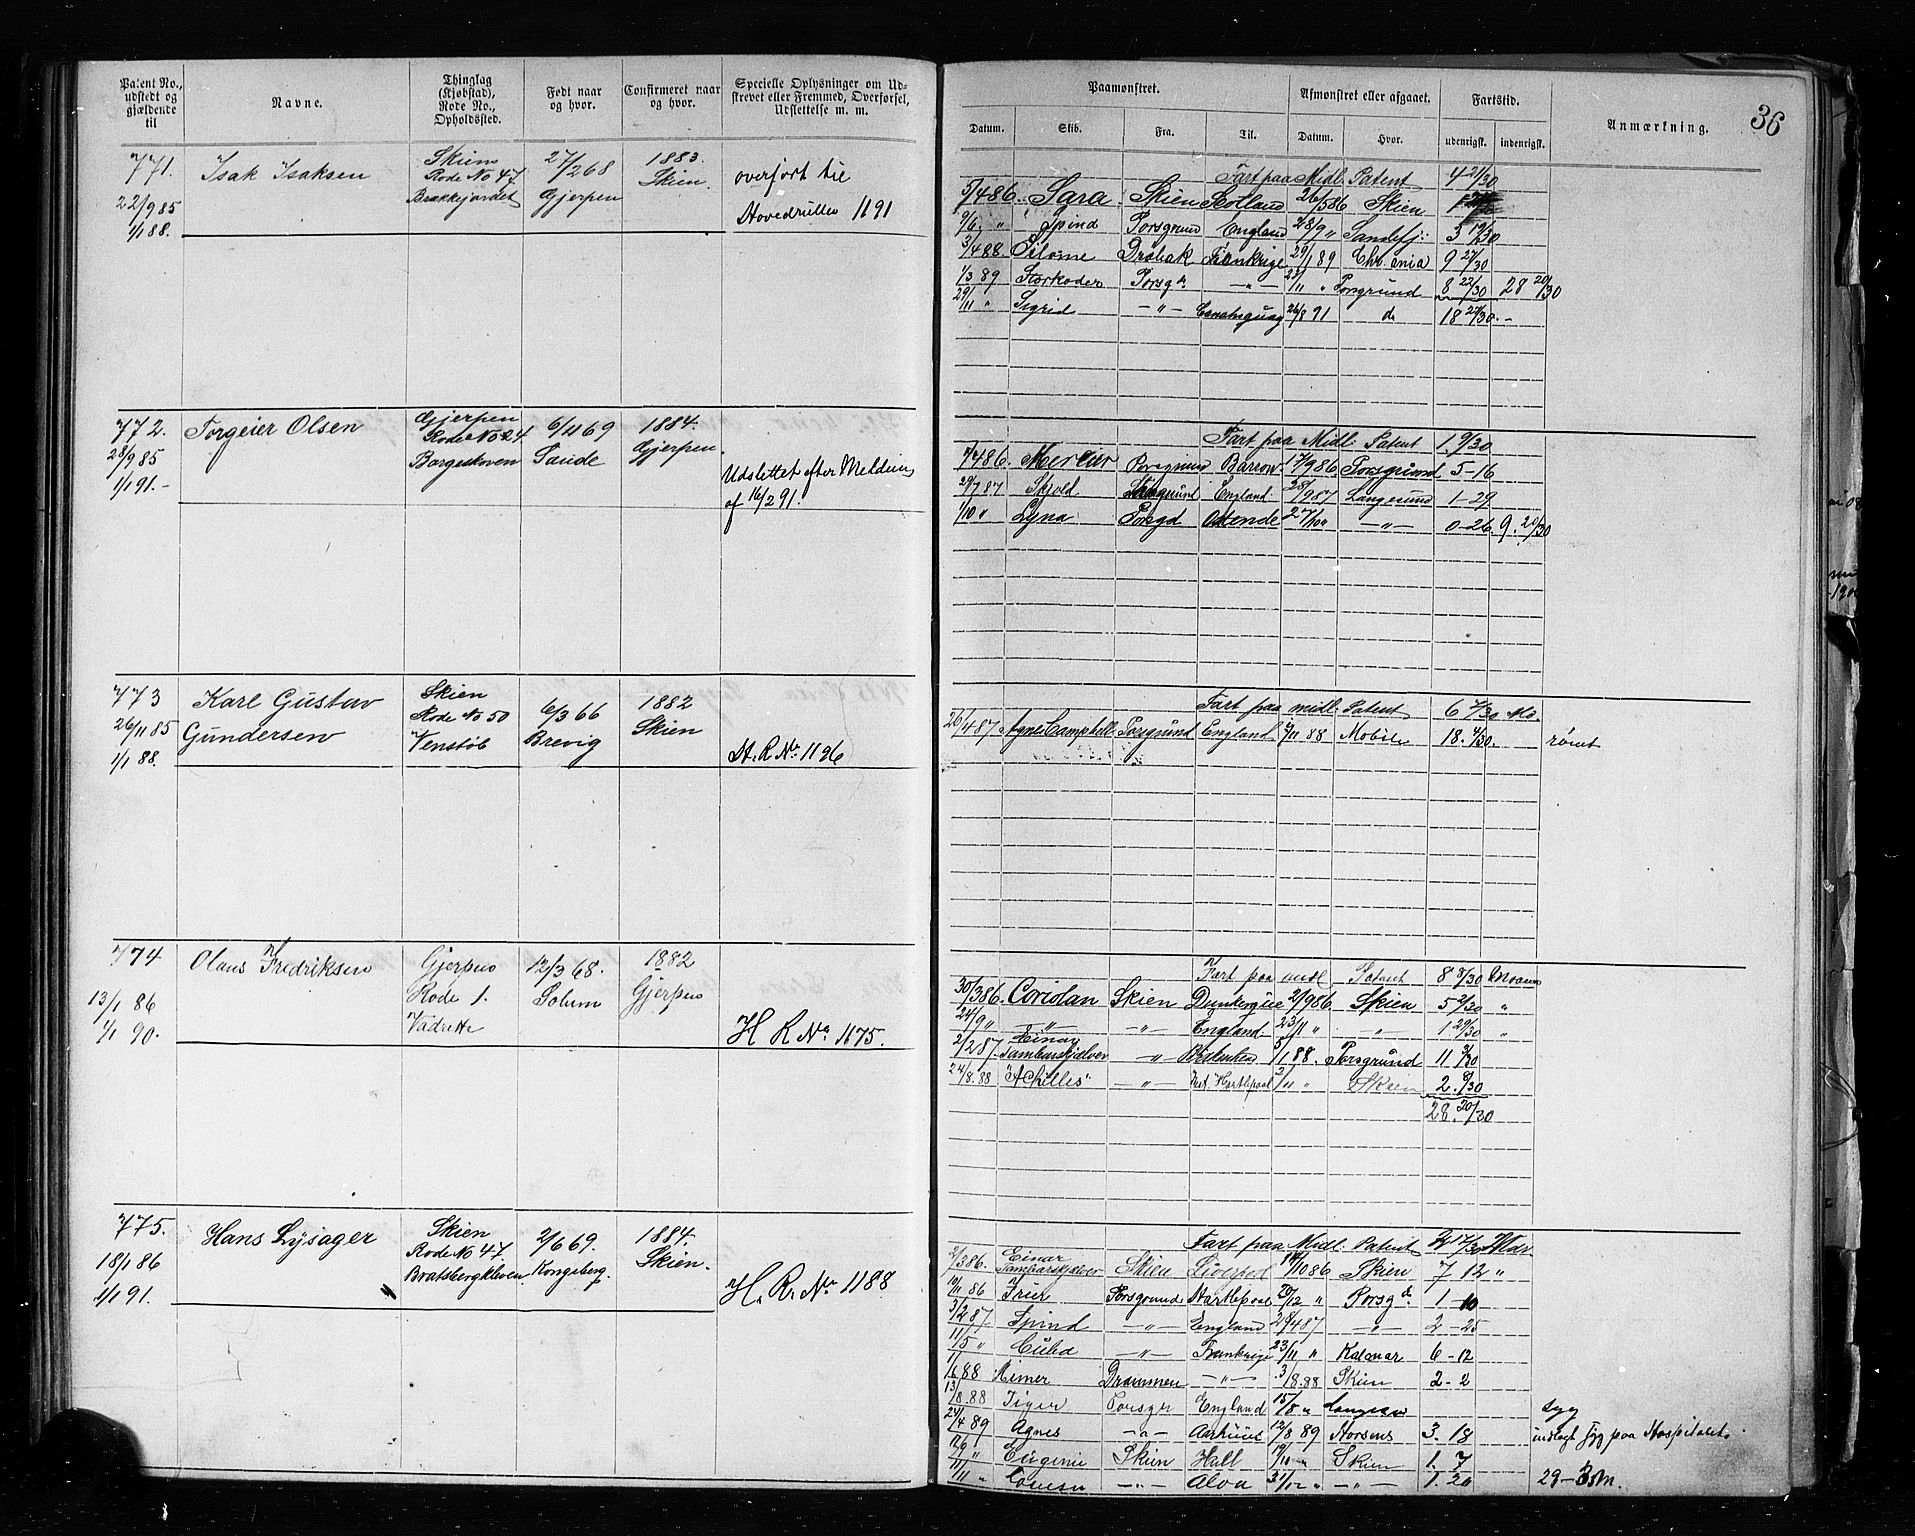 36
Patent No., udstedt og gjældende til
Navne.
Thinglag (Kjøbstad), Rode No., Opholdssted.
Født naar og hvor.
Confirmeret naar og hvor.
Specielle Oplysninger om Udstrevet eller Fremmed, Overførsel, Udslettelse m. m.
Paamønstret.
Afmønstret eller afgaaet.
Fartstid.
Anmærkning.
Datum. Skib. Fra. Til. Datum. Hvor. udenrigsk. indenrigsk.
771. Isak Isaksen Skiens 27/2 68 1883. overført til
Rode No 47 Skien.
22/9 85 Brækkejordet Gjerpen Hovedrullen 1191
1/1 88.
Fart paa Midl. Patent 4 21/30
5/4 86. Sara Skien Scotland 26/5 86 Skien
9/6 " Spind Porsgrund England 28/9 " Sandefj: 3 19/30
3/4 88. Drøbak Frankrige 29/1 89 Chr.ania 9 27/30
1/3 89 Storkoder Porsgd —"— 23/11 " Porsgrund 8 22/30 28 20/30
29/11 " Sigrid —"— 26/8 91 do 18 28/30.-
772. Torgeier Olsen Gjerpen 6/11 69 1884.
Rode No 24
28/9 85 Borgeskoven Saude Gjerpen. Udslettet efter Meldin
1/1 91.- af 16/2 91.
Fart paa Midl Patent 1. 9/30
7/4 86. Mercur Porsgrund Barrow. 17/9 86 Porsgrund 5-16
29/7 87 Skjold England. 28/9 87 Langesund 1-29
1/10 " Lyna Porsgd Ostende 27/10 " —"— 0-26. 9. 20/30
773 Karl Gustav Skien 6/3 66 1882
26/11 85 Gundersen Rode No 50 Brevig Skien
1/1 88. Venstøb H. R No 1126
Fart paa midl. Patent 6 7/30 Mo.
26/4 87 Agnes Campbell Porsgrund England 9/11 88 Mobile 18. 4/30. rømt
774 Olaus Fredriksen Gjerpen 12/3 68. 1882
13/1 86 Rode 1. Solum Gjerpen
1/1 90. Vadrette H R No 1175.
Fart paa midl Patent 8 8/30
30/3 86. Coriolan Skien Dunkerque 2/9 86 Skien 5 2/30 "
24/9 " —"— —"— England. 23/11 " —"— 1 29/30 "
2/2 87. Einar Tambarskjelver —"— 5/1 88. Porsgrund 11 3/30
24/8. 88 "Achilles" —"— Vest Hartlepool 2/11 " Skien 2. 8/30
28. 20/30
775. Hans Lysager Skien 2/6 69. 1884.
18/1 86 Rode No 47 Skien.
1/1 91. Bratsbergkleven Kongsberg. H. R. No 1188
Fart paa Midl. Patent 7/30
2/3 86. Einar Tambarskjelver Skien Liverpool 14/10 86 Skien 7 12 "
10/11 86 Frier Porsgrund Hartlepool 20/12 " Porsgd. 1-10
3/2 87. Spind —"— England 28/4 87 —"— 2-25
11/5 " Cuba —"— Frankrige 23/11 " Kalmar 6-12
1/6 88 Mimer Drammen —"— 3/8. 88 Skien 2-2
13/8. 88 Tiger Porsgr England 15/8 " Langesun syg
24/4 89 Agnes —"— Aarhuus 12/8 89 Horsens 3. 18 indlagt syg paa Hospitalet.
" Eugenie Skien Hull 19/11 " Skien 1. 7
11/11 " —"— Aloa 31/12 " —"— 1. 26